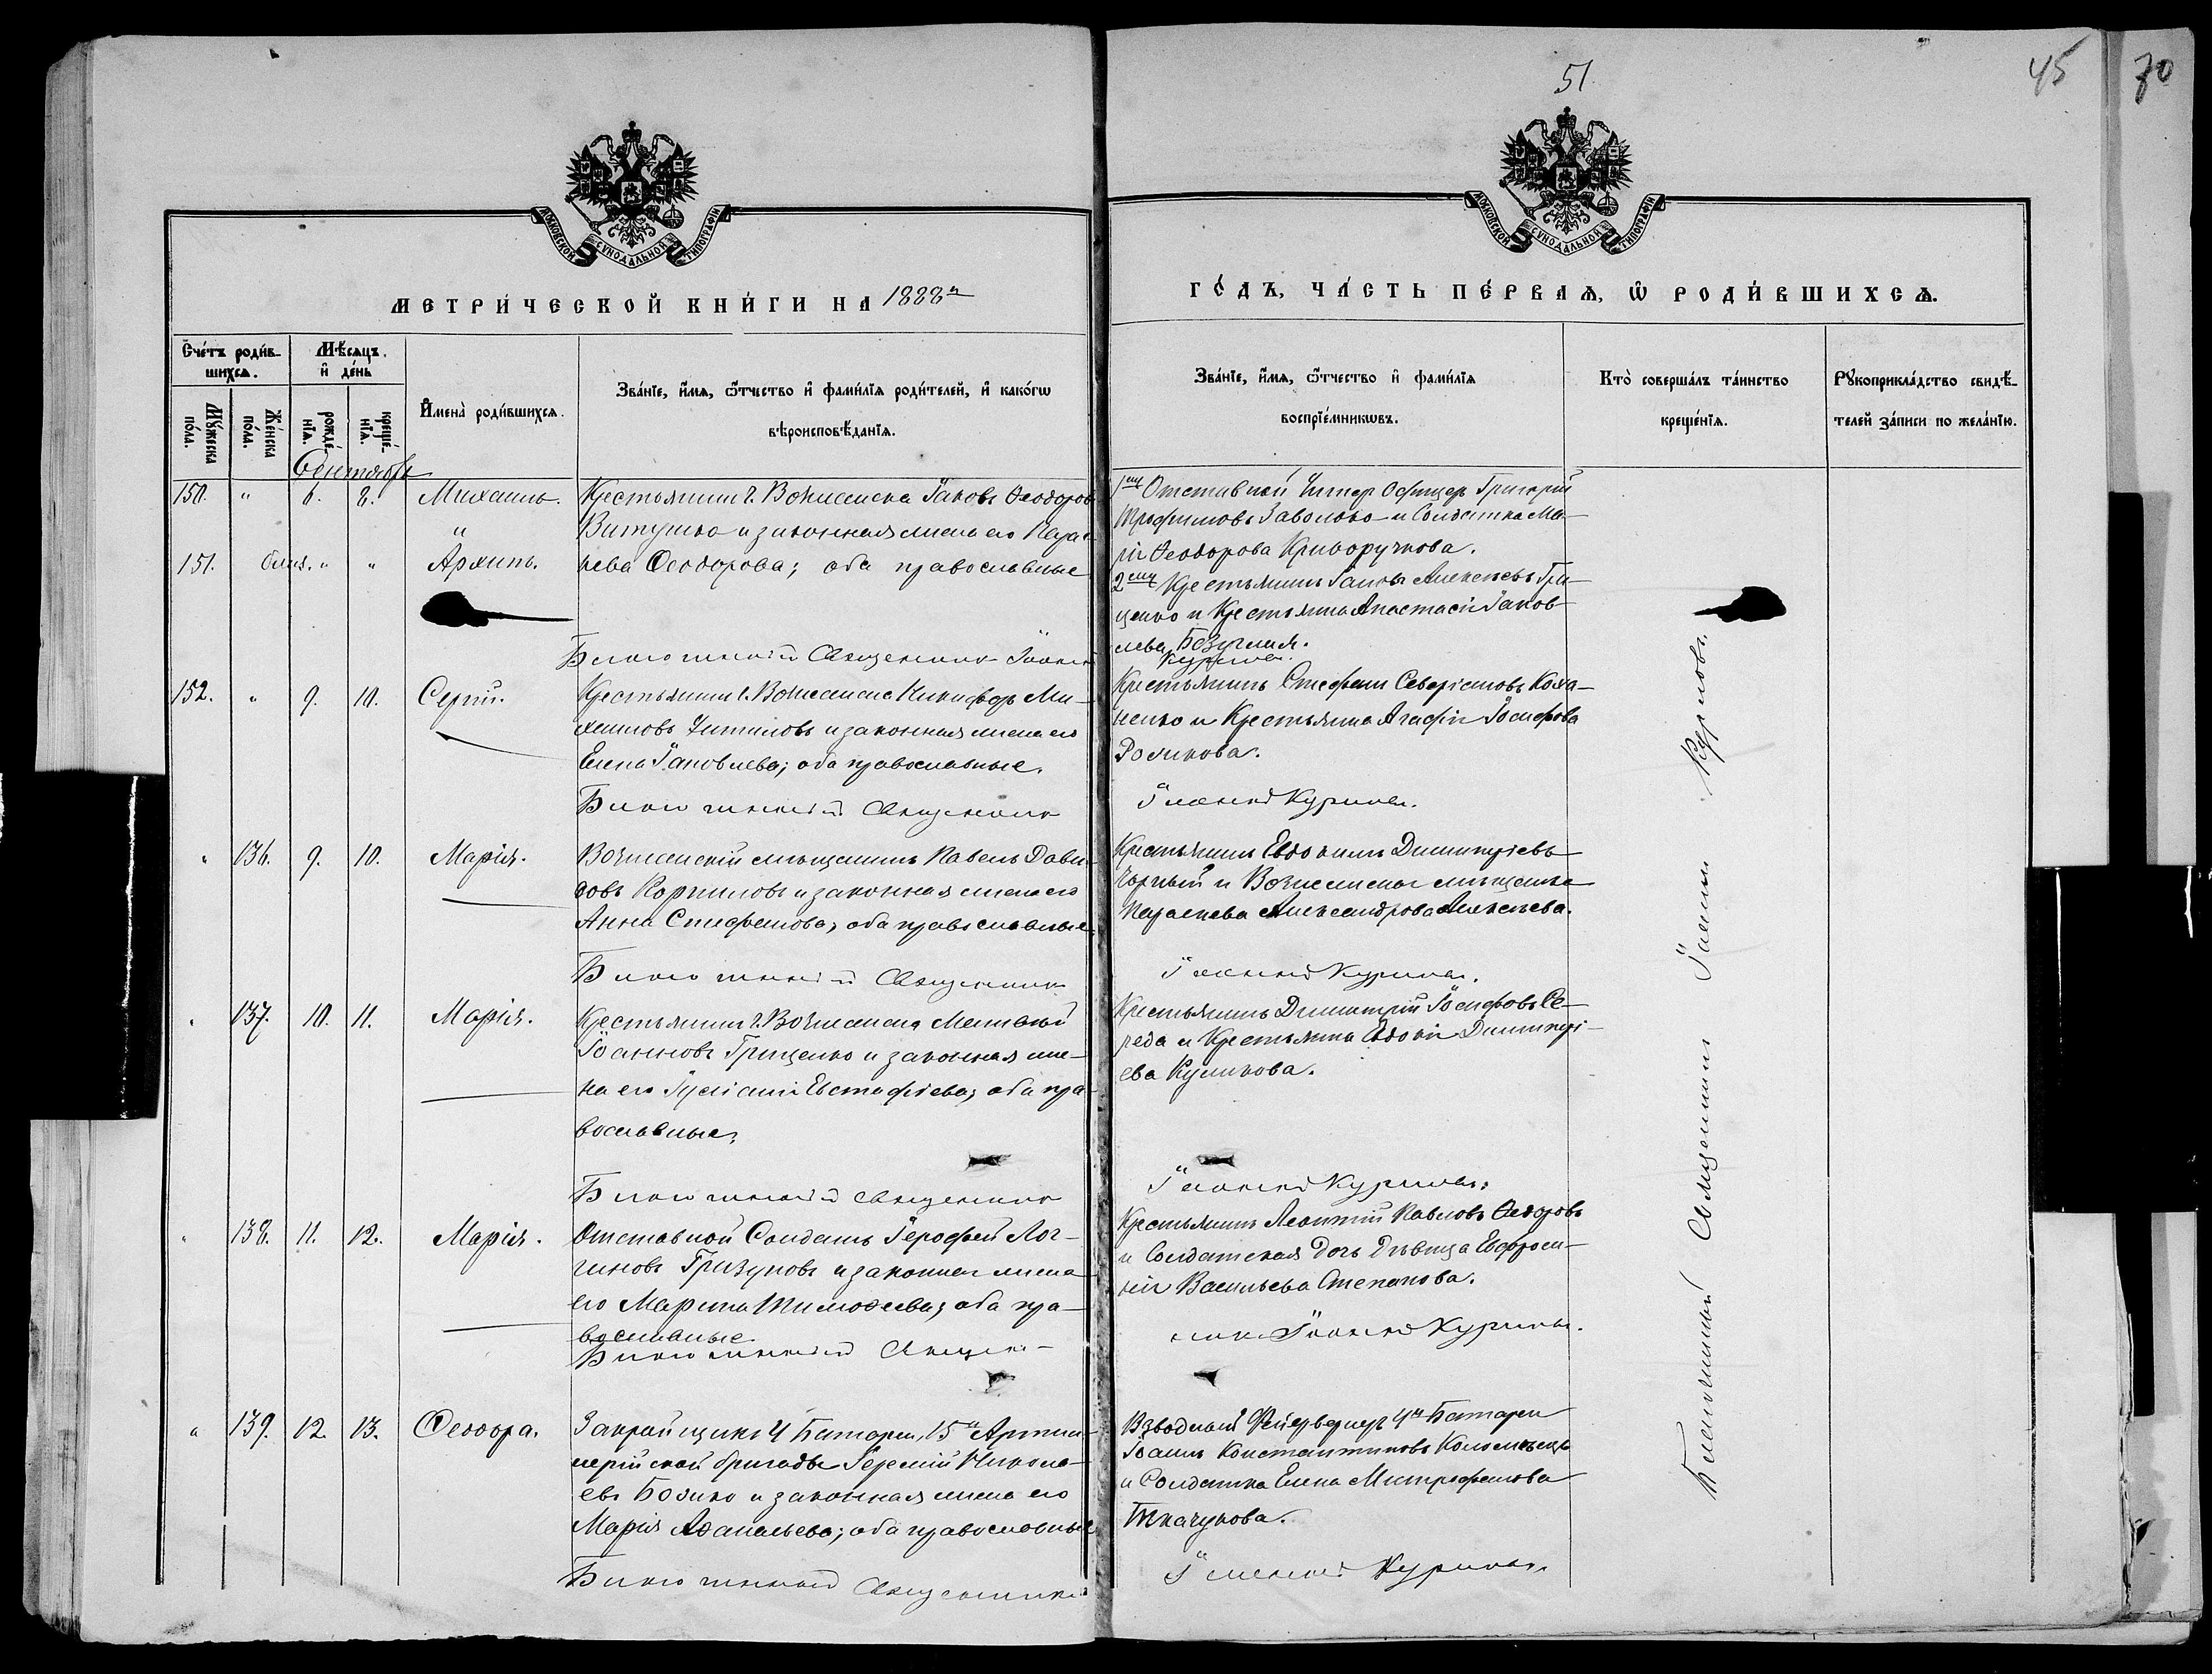 51
45
70
МОСКОВСКОЙ СѴНОДАЛЬНОЙ ТИПОГРАФІИ
МОСКОВСКОЙ СѴНОДАЛЬНОЙ ТИПОГРАФІИ
МЕТРИ́ЧЕСКОЙ КНИ́ГИ НА 1888й
ГО́ДЪ, ЧА́СТЬ ПЕ́РВАѦ, Ѡ҆ РОДИ́ВШИХСѦ.
Счéтъ роди́в-
шихсѧ.
Мѣ́сѧцъ.
и҆ де́нь
Мꙋ́жеска по́ла.
Же́нска по́ла.
рожде́-нїѧ.
креще́-нїѧ.
И҆мена̀ роди́вшихсѧ.
Зва́нїе, и҆́мѧ, ѻ҆́тчество и҆ фами́лїѧ роди́телей, и҆ како́гѡ
вѣроисповѣ́данїѧ.
Зва́нїе, и҆́мѧ, ѻ҆́тчество и҆ фами́лїѧ
воспрїе́мникѡвъ.
Кто̀ соверша́лъ та́инство
креще́нїѧ.
Рꙋкоприкла́дство свидѣ́-
телей за́писи по жела́нїю.
Сентябрь
150. " 6. 8. Михаилъ.
Крестьянинъ г. Вознесенска Іаковъ Ѳеодоровъ
Витушко и законная жена его Парас-
151. близ. " " Архипъ.
кева Ѳеодорова; оба православные
1му Отставной Унтеръ Офицеръ Григорій
Трофимовъ Заволоко и Солдатка Ма-
рія Ѳеодорова Криворучкова.
2му Крестьянинъ Іаковъ Алексѣевъ Гри-
ценко и Крестьянка Анастасія Іаков-
лева Безуглая.
Благочинный Священникъ Іоаннъ
Куриловъ.
152. " 9. 10. Сергій.
Крестьянинъ г. Вознесенска Никифоръ Ми-
хаиловъ и законная жена его
Елена Іаковлева; оба православные.
Крестьянинъ Стефанъ Северіановъ Коха-
ненко и Крестьянка Агафія Іосифова
Благочинный Священникъ
Іоаннъ Куриловъ.
" 136. 9. 10. Марія.
Вознесенскій мѣщанинъ Павелъ Дави-
довъ Корниловъ и законная жена его
Анна Стефанова; оба православные
Крестьянинъ Евдокимъ Димитріевъ
Чорный и Вознесенская мѣщанка
Параскева Александрова Алексѣева.
Благочинный Священникъ
Іоаннъ Куриловъ.
" 137. 10. 11. Марія.
Крестьянинъ г. Вознесенска
Іоанновъ Гриценко и законная же-
на его Іуліанія Евстафіева; оба пра-
вославные.
Крестьянинъ Димитрій Іосифовъ Се-
реда и Крестьянка Евдокія Димитрі-
ева Куликова.
Благочинный Священникъ
Іоаннъ Куриловъ.
" 138. 11. 12. Марія.
Отставной Солдатъ Іерофей Лог-
гиновъ Гризуновъ и законная жена
его Марина Тимоѳеева; оба пра-
вославные.
Крестьянинъ Леонтій Павловъ Ѳедоровъ
и Солдатская дочь дѣвица Евфроси-
нія Васильева Степанова.
Благочинный Священ-
никъ Іоаннъ Куриловъ.
" 139. 12. 13. Ѳеодора.
Закройщикъ 4 Батареи, 15й Артил-
лерійской бригады Іеремій Никола-
евъ и законная жена его
Марія Аѳанасьева; оба православные
Взводный Фейерверкеръ 4й Батареи
Іоаннъ Константиновъ Коломѣецъ
и Солдатка Елена Митрофанова
Ткачукова.
Благочинный Священникъ
Іоаннъ Куриловъ.
Благочинный Священникъ Іоаннъ Куриловъ.